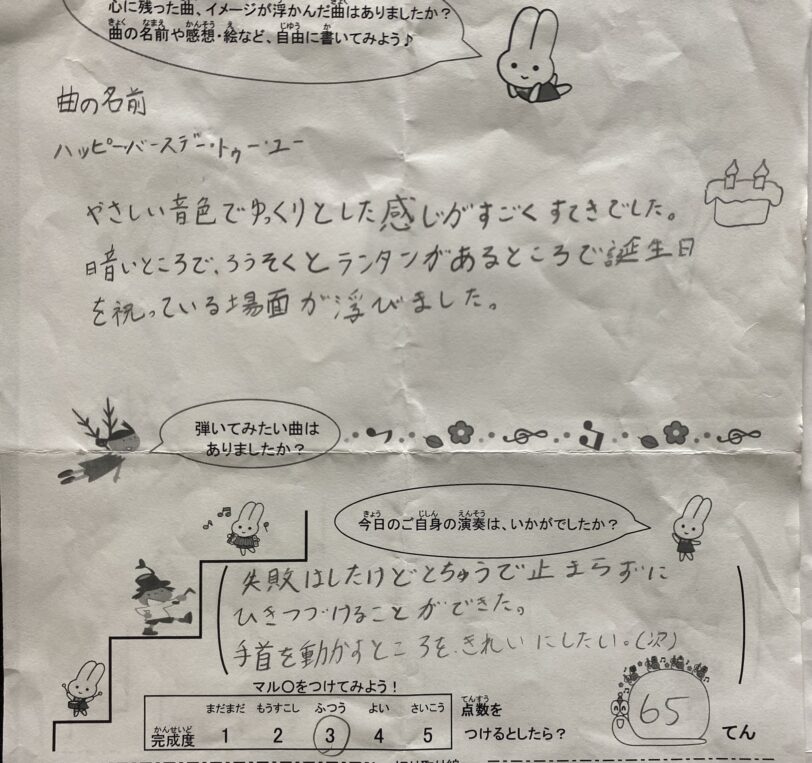 心に残った曲、イメージが浮かんだ曲はありましたか？
曲の名前や感想・絵など、自由に書いてみよう♪
曲の名前
ハッピーバースデー・トゥー・ユー
やさしい音色でゆっくりとした感じがすごくすてきでした。
暗いところで、ろうそくとランタンがあるところで誕生日
を祝っている場面が浮びました。
弾いてみたい曲は
ありましたか？
今日のご自身の演奏は、いかがでしたか？
失敗はしたけどとちゅうで止まらずに
ひきつづけることができた。
手首を動かすところを、きれいにしたい。(次)
マル〇をつけてみよう！
まだまだ もうすこし ふつう よい さいこう
完成度 1 2 3 4 5
点数を
つけるとしたら？
65 てん